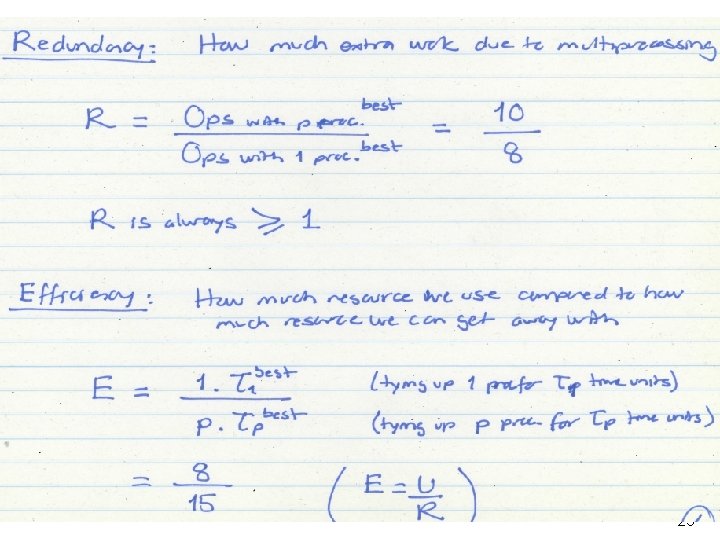 Redundancy: How much extra work due to multiprocessing
R = Ops with p proc. best / Ops with 1 proc. best = 10 / 8
R is always ≥ 1
Efficiency: How much resource we use compared to how
much resource we can get away with
E = 1. T1 best / p. Tp best (tying up 1 proc for Tp time units)
(tying up p proc for Tp time units)
= 8 / 15 (E = U / R)